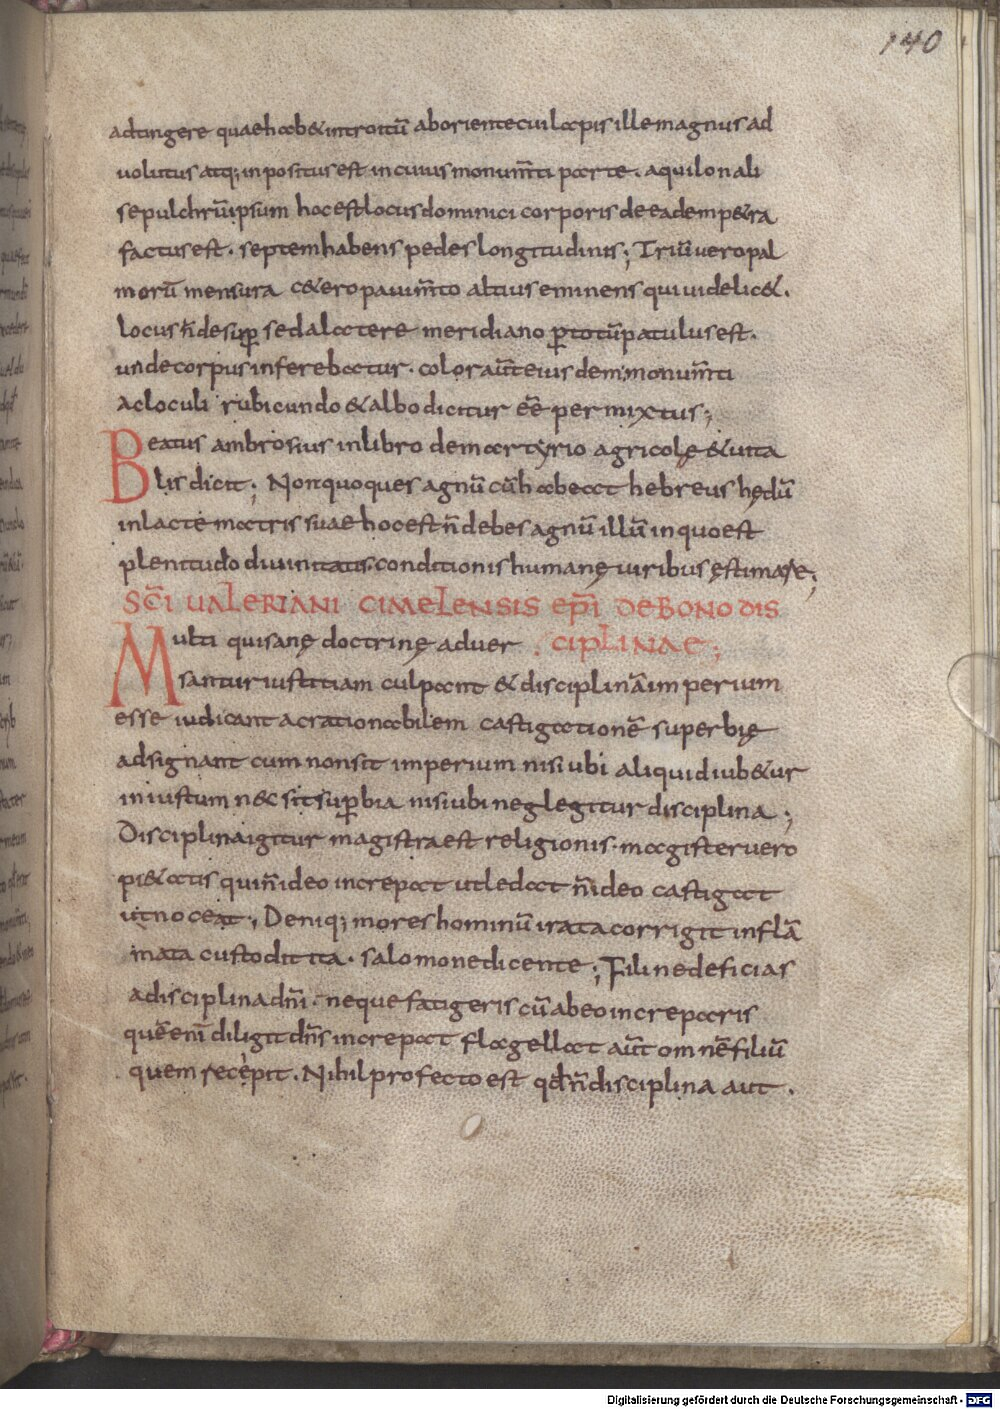 140
adtingere quae hab& introitū ab oriente cui lapis ille magnus ad
volutus atq; inpositus est in cuius monum̄ti parte. aquilonali
sepulchrūipsum hoc est locus dominici corporis de eadem p&ra
factus est. septem habens pedes longitudinis; Triū vero pal
morū mensura c&ero pavim̄to altius eminens qui videlic&.
locus n̄ desup̱ sed a latere meridiano p̱totū patulus est.
unde corpus inferebatur. color aūt eiusdem monum̄ti
ac loculi rubicundo & albo dicitur eē permixtus;
Beatus ambrosius in libro de martyrio agricolę & vita
lis dicit; Non quoques agnū cū habeat hebreus hędū
in lacte matris suae hoc est n̄ debes agnū illū in quo est
plenitudo divinitatis. conditionis humanę viribus ęstimare;
SC̄I VALERIANI CIMELENSIS EPĪ DE BONO DIS
CIPLINAE;
Multi qui sanę doctrinę adver
santur iustitiam culpant & disciplinā imperium
esse iudicant ac rationabilem castigationē superbię
adsignant cum non sit imperium nisi ubi aliquid iub&ur
iniustum nec sit sup̱bia nisi ubi neglegitur disciplina;
Disciplina igitur magistra est religionis. magister vero
pi&atis qui n̄ ideo increpat ut ledat n̄ ideo castigat
ut noceat; Deniq; mores hominū irata corrigit inflā
mata custodit ita. salomone dicente; Fili ne deficias
a disciplina dn̄i. neque fatigeris cū ab eo increparis
quē enī diligit dn̄s increpat flagellat aūt omnē filiū
quem recepit. Nihil profecto est qd̄ n̄ disciplina aut.
Digitalisierung gefördert durch die Deutsche Forschungsgemeinschaft - DFG